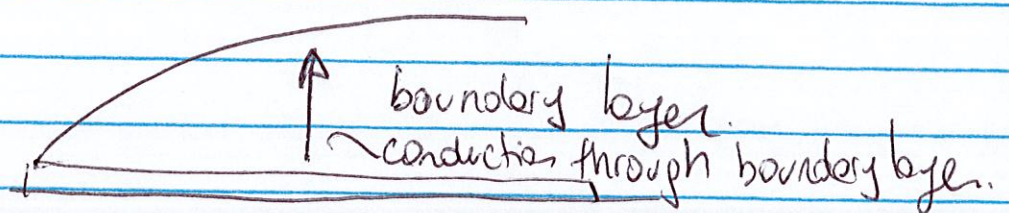 boundary layer.
~conduction through boundary layer.